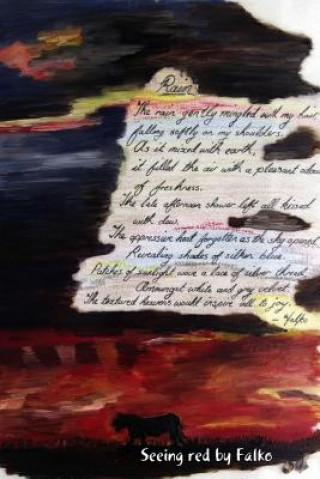 Rain
The rain gently mingled with my hair,
falling softly on my shoulders.
As it mixed with earth,
it filled the air with a pleasant odour
of freshness.
The late afternoon shower left all kissed
with dew.
The oppressive heat forgotten as the sky opened,
Revealing shades of silken blue.
Patches of sunlight wove a lace of silver thread,
Amongst white and grey velvet.
The textured heavens would inspire all to joy.
- Falko
Seeing red by Falko